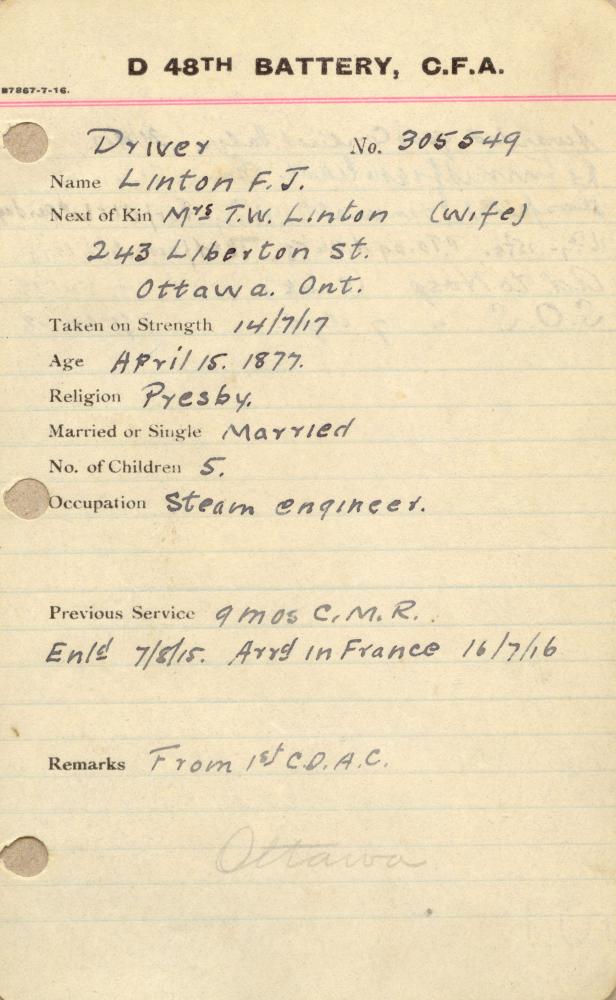 D 48TH BATTERY, C.F.A.
87867-7-16.
Driver No. 305549
Name Linton F.J.
Next of Kin Mrs T.W. Linton (Wife)
243 Liberton St.
Ottawa. Ont.
Taken on Strength 14/7/17
Age April 15. 1877.
Religion Presby.
Married or Single Married
No. of Children 5.
Occupation Steam engineer.
Previous Service 9 mos C.M.R.
Enld 7/8/15. Arrd in France 16/7/16
Remarks From 1st C.D.A.C.
Ottawa